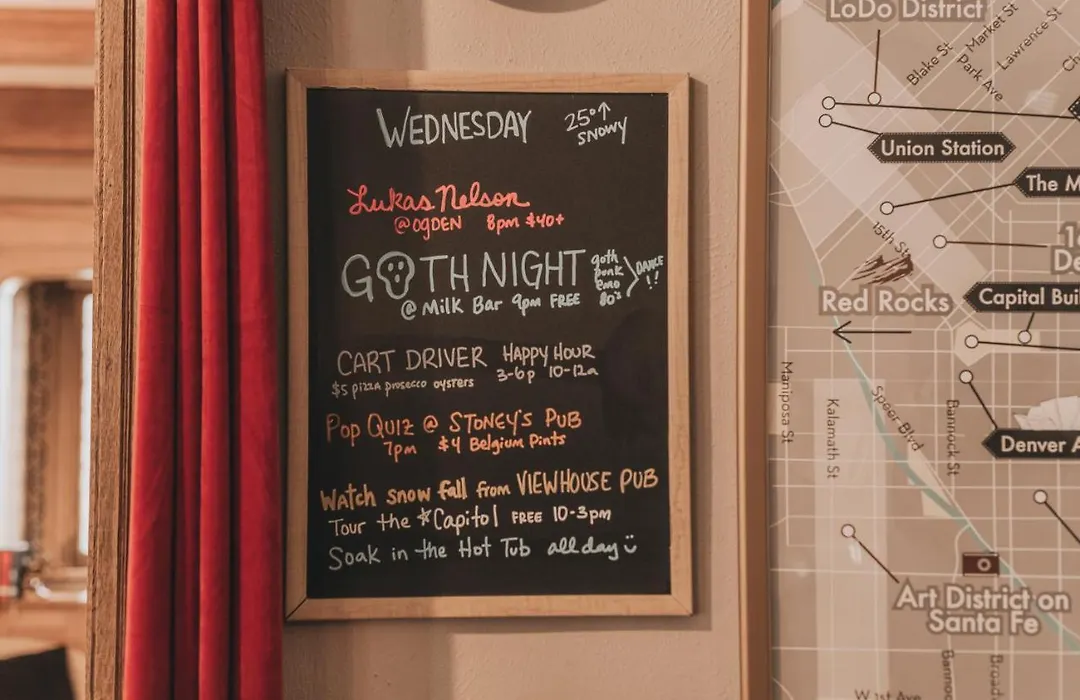 WEDNESDAY 25°↑ SNOWY
Lukas Nelson
@OGDEN 8pm $40+
GOTH NIGHT goth punk emo 80's DANCE !!
@ Milk Bar 9pm FREE
CART DRIVER HAPPY HOUR
$5 pizza prosecco oysters 3-6p 10-12a
Pop Quiz @ STONEY'S PUB
7pm $4 Belgium Pints
Watch snow fall from VIEWHOUSE PUB
Tour the Capitol FREE 10-3pm
Soak in the Hot Tub all day
LoDo District
Market St
Lawrence St
Blake St
Park Ave
Union Station
The M
15th St
Red Rocks
Capital Bui
Mariposa St
Kalamath St
Speer Blvd
Bannock St
Denver A
Art District on
Santa Fe
W 1st Ave